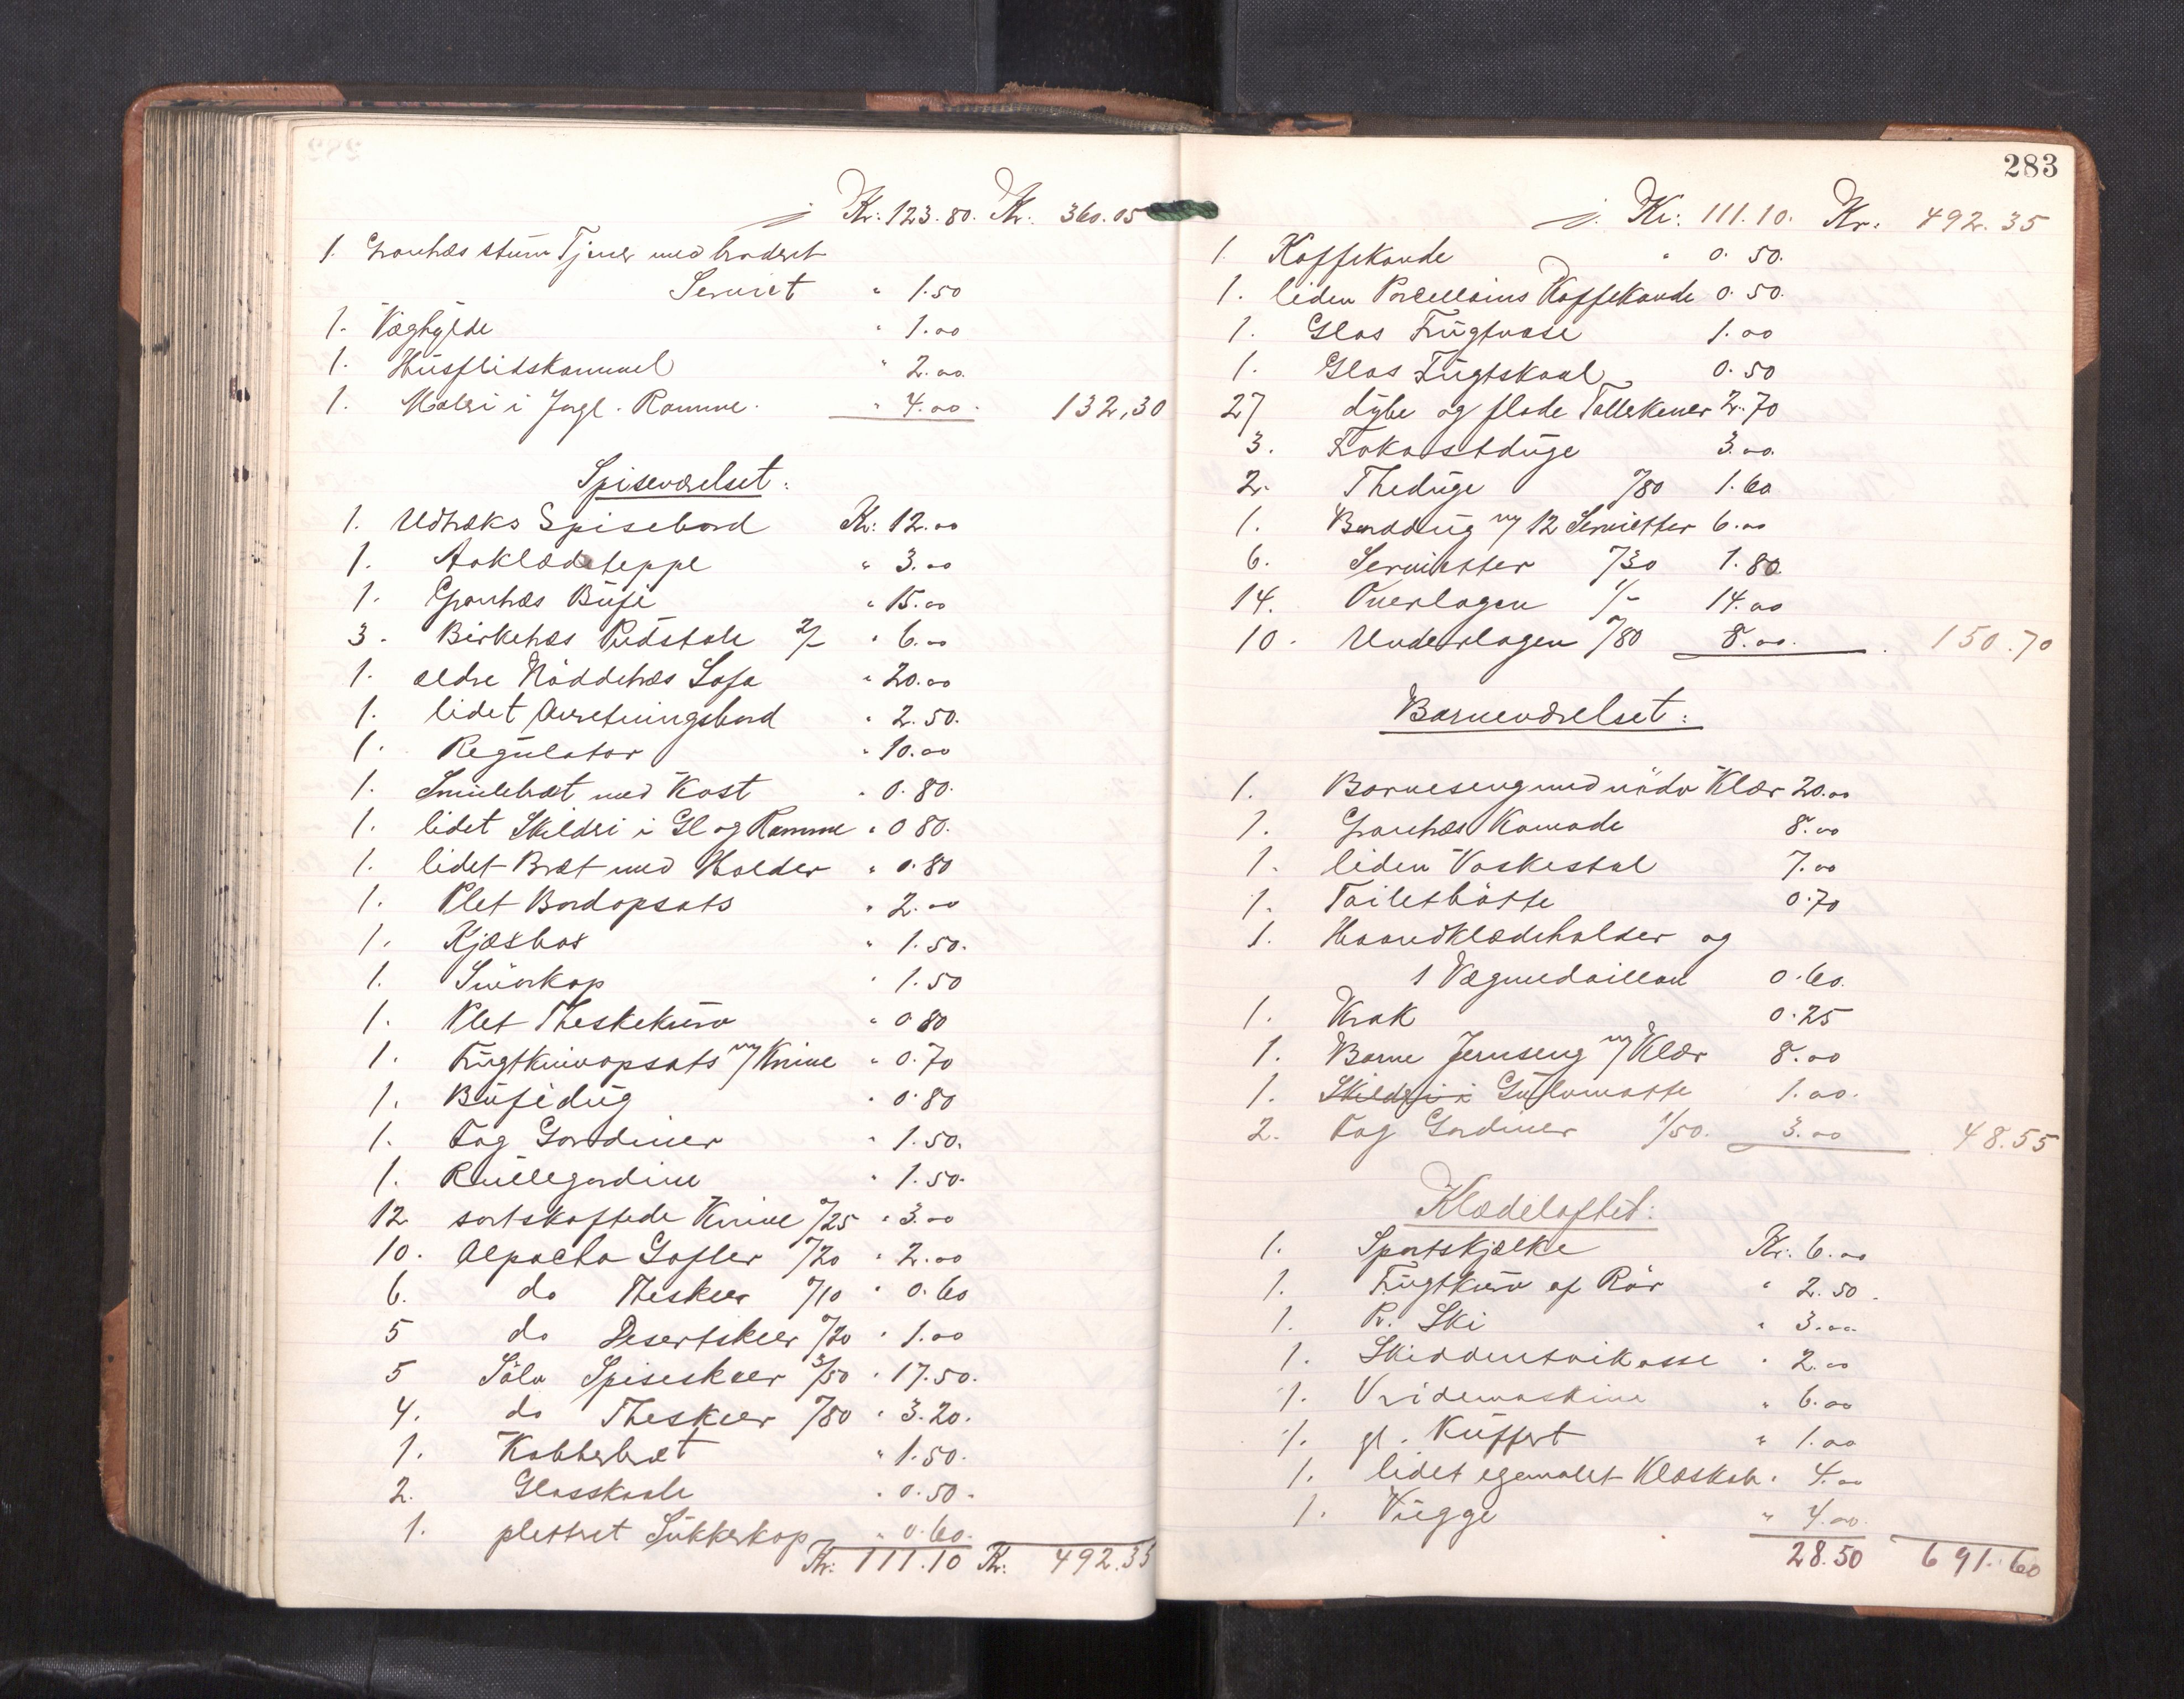 j Kr: 123.80. Kr: 360.05
1. Grantræs stum Tjener med broderet
Serviet " 1.50
1. Væghylde " 1.00
1. Husflidskammel " 2.00
1. Maleri i Forgl. Ramme. " 4.00. 132,30
Spiseværelset:
1. Udtræks Spisebord Kr: 12.00
1. Aaklædeteppe " 3.00
1. Grantræs Büfé " 15.00
3. Birketræs Pidestale 2/- " 6.00
1. ældre Nöddetræs Sofa " 20.00
1. lidet Anretningsbord " 2.50.
1. Regulator " 10.00
1. Smulebræt med Kost " 0.80.
1. lidet Skilderi i Gl og Ramme " 0 80.
1. lidet Bræt med Holder " 0.80
1. Plet Bordopsats " 2.00
1. Kjæxbox " 1.50.
1. Smörkop " 1.50
1. Plet Theskekurv " 0 80
1. Frugtknivopsats m/ Knive " 0.70
1. Büfédug " 0.80
1. Fag Gardiner " 1.50.
1. Rullegardin " 1.50.
12 sortskaftede Knive "/25 " 3.00
10. Alpacka Gafler "/20 " 2.00
6. do Theskeer "/10 " 0.60
5 do Desertskeer "/20 " 1.00
5 Sölv Spiseskeer 3/50 " 17.50.
4. do Theskeer "/80 " 3.20.
1. Kobberbræt " 1.50.
2. Glasskaale " 0.50.
1. plettret Sukkerkop " 0.60.
Kr: 111.10 Kr: 492.35
283
j. Kr: 111.10. Kr: 492.35
1. Kaffekande " 0.50.
1. liden Porcellains Kaffekande 0.50.
1. Glas Frugtvase 1.00
1. Glas Frugtskaal 0.50
27 dybe og flade Tallerkener 2.70
3. Frokostduge 3.00
2. Theduge "/80 1.60
1. Borddug m/ 12 Servietter 6.00
6. Servietter "/30 1.80.
14. Overlagen 1/- 14.00
10. Underlagen "/80 8.00. 150.70
Barneværelset:
1. Barneseng med nödv Klær 20.00
1. Grantræs Komode 8.00
1. liden Vaskestol 7.00
1. Toiletbötte 0.70
1. Haandklædeholder og
1 Vægmedaillon 0.60.
1. Krak 0.25
1. Barne Jernseng m/ Klær 8.00
1. Skilderi i Gulvmatte 1.00.
2. Fag Gardiner 1/50. 3.00 48.55
Klædeloftet:
1. Sportskjælke Kr: 6.00
1. Frugtkurv af Rör " 2.50.
1. P. Ski " 3.00
1. Skiddentöikasse " 2.00
1. Vridemaskine " 6.00
1. gl. Kuffert " 1.00
1. lidet egemalet Klæsksk. " 4.00
1. Vugge " 4.00.
28.50 691.60